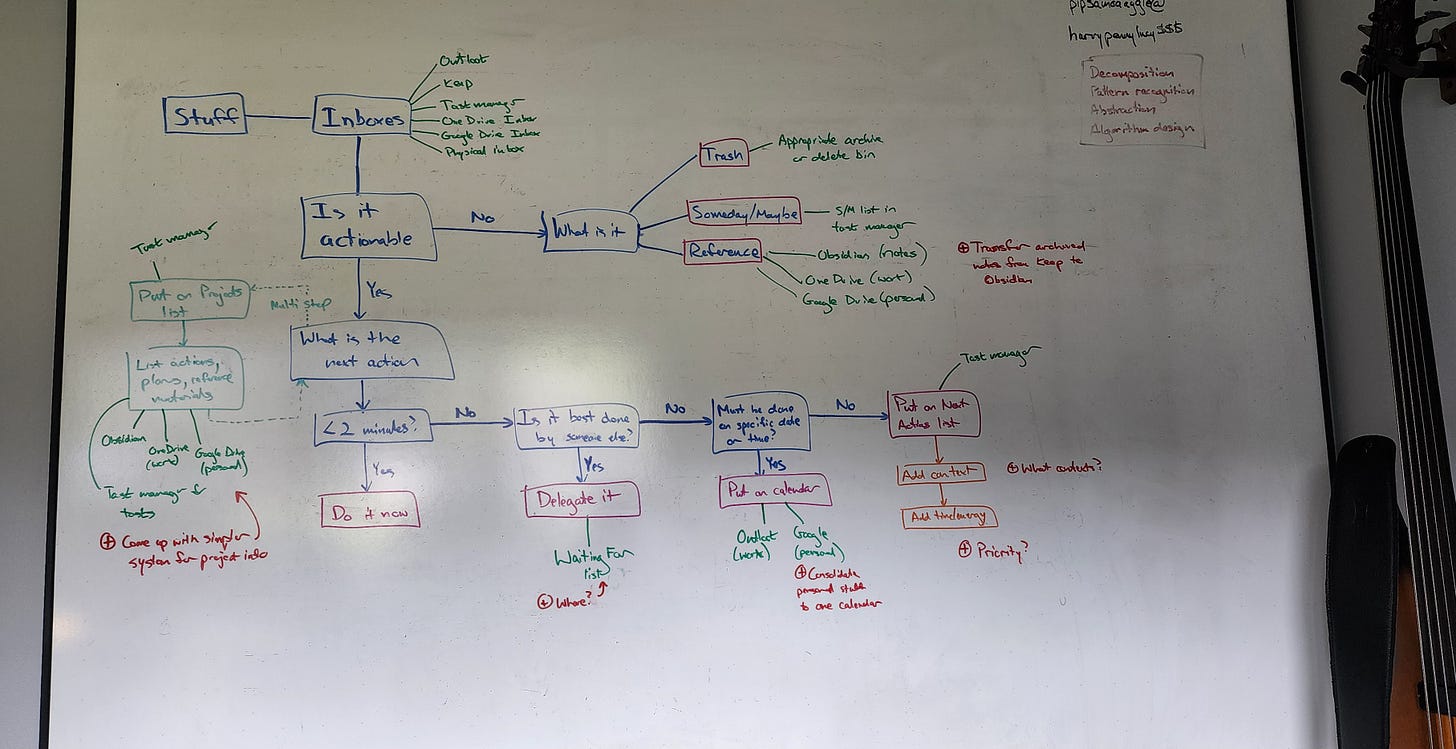 Decomposition
Pattern recognition
Abstraction
Algorithm design
Stuff
Inboxes
Outlook
Keep
Task manager
One Drive Inbox
Google Drive Inbox
Physical inbox
Is it
actionable
No
What is it
Trash
Appropriate archive
or delete bin
Someday/Maybe
S/M list in
task manager
Reference
Obsidian (notes)
One Drive (work)
Google Drive (personal)
⊕ Transfer archived
notes from Keep to
Obsidian
Yes
Task manager
Put on Projects
list
Multi step
What is the
next action
List actions,
plans, reference
materials
Obsidian
OneDrive
(work)
Google Drive
(personal)
Task manager for
tasks
⊕ Come up with simpler
system for project info
< 2 minutes?
Yes
Do it now
No
Is it best done
by someone else?
Yes
Delegate it
Waiting For
list
⊕ Where?
No
Must be done
on specific date
or time?
Yes
Put on calendar
Outlook
(work)
Google
(personal)
⊕ Consolidate
personal stuff
to one calendar
No
Task manager
Put on Next
Actions list
Add context
⊕ What contexts?
Add time/energy
⊕ Priority?